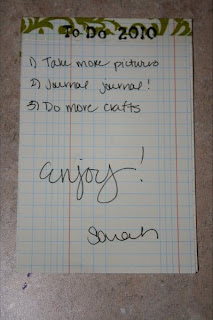 To Do 2010
1) Take more pictures
2) Journal journal!
3) Do more crafts
enjoy!
Sarah